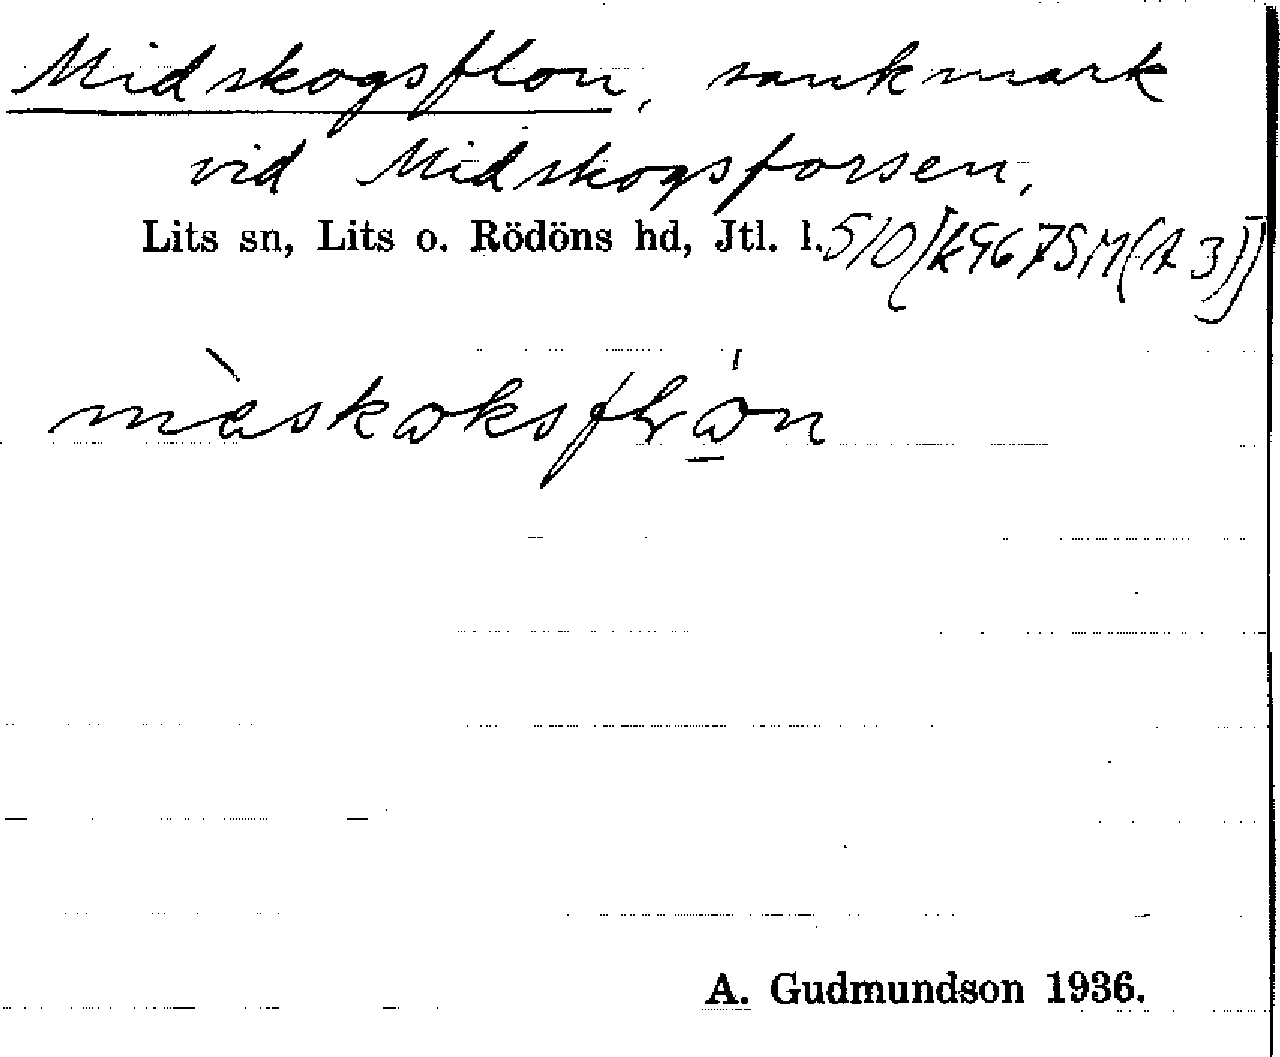 Midskogsflon, sankmark
vid Midskogsforsen,
Lits sn, Lits o. Rödöns hd, Jtl. l. 510/[k 9675M(A3)]
A. Gudmundson 1936.